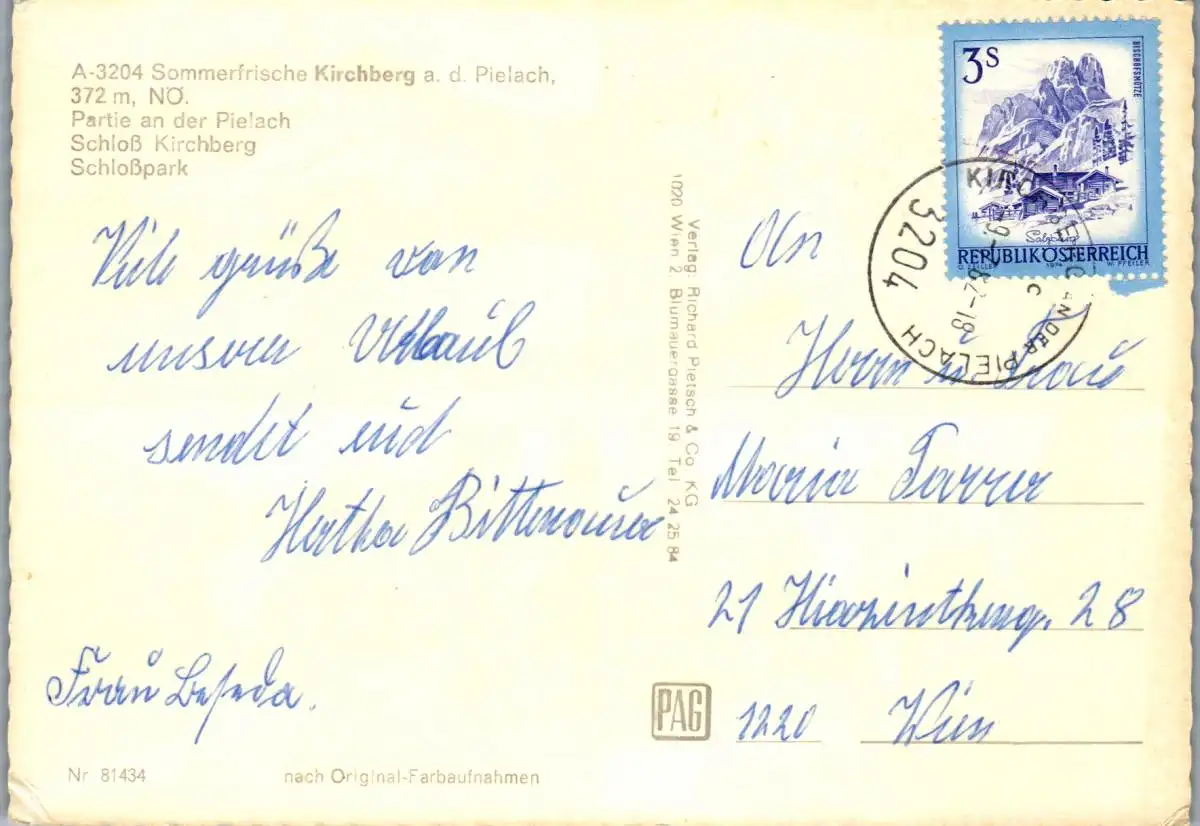 A-3204 Sommerfrische Kirchberg a. d. Pielach,
372 m, NÖ.
Partie an der Pielach
Schloß Kirchberg
Schloßpark
Viele grüße von
unserer Urlaub
sendet eud
Hertha
Frau Beseda.
Nr 81434
nach Original-Farbaufnahmen
Verlag: Richard Pietsch & Co. KG
1020 Wien 2, Blumauergasse 19 Tel. 24 25 84
PAG
3S
BISCHOFSMÜTZE
Salzburg
REPUBLIK ÖSTERREICH
O. ZEILLER 1974 W. PFEILER
3204 KIRCHBERG AN DER PIELACH
An
Herrn u Frau
Maria Farrer
21 Hiazintheng. 28
1220 Wien